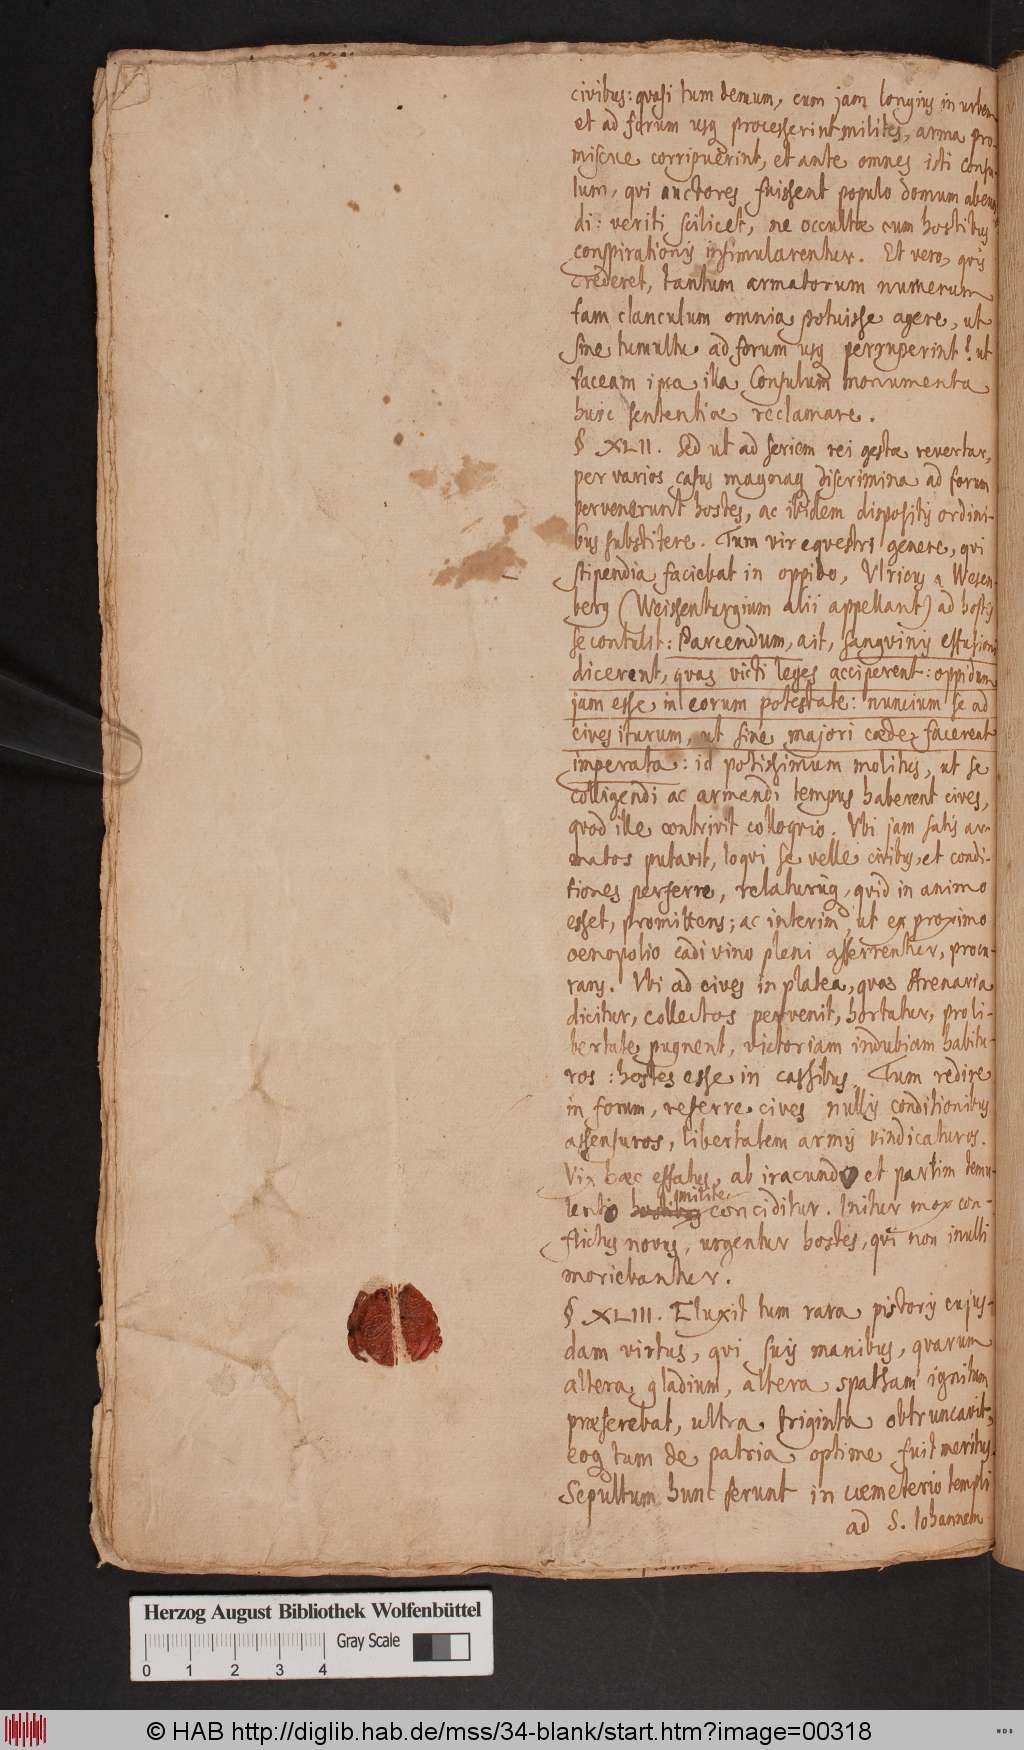 civibus: quasi tum demum, cum jam longius in urbem
et ad forum usq processerint milites, arma pro-
miscue corripuerint, et ante omnes isti Consu-
lum, qui auctores fuissent populo domum abeun-
di: veriti scilicet, ne occultæ cum hostibus
conspirationis insimularentur. Et vero, quis
crederet, tantum armatorum numerum
tam clanculum omnia potuisse agere, ut
sine tumultu ad forum usq perruperint? ut
taceam ipsa illa Consulum monumenta
huic sententiæ reclamare.
§ XLII. Sed ut ad seriem rei gestæ revertar,
per varios casus magnaq discrimina ad forum
pervenerunt hostes, ac ibidem dispositis ordini-
bus substitere. Tum vir equestri genere, qui
stipendia faciebat in oppido, Ulricus a Wesen-
berg (Weissenburgium alii appellant) ad hostes
se contulit: Parcendum, ait, sanguinis effusioni
dicerent, quas victi leges acciperent: oppidum
jam esse in eorum potestate: nuncium se ad
cives iturum, ut sine majori cæde facerent
imperata: id potissimum molitus, ut se
colligendi ac armandi tempus haberent cives,
quod ille contrivit colloquio. Ubi jam satis ar-
matos putavit, loqui se velle civibus et condi-
tiones perferre, relaturusq, quid in animo
esset, promittens; ac interim, ut ex proximo
oenopolio cadi vino pleni afferrentur, procu-
rans. Ubi ad cives in platea, quas Arenaria
dicitur, collectos pervenit, hortatur, pro li-
bertate pugnent, victoriam indubiam habitu-
ros: hostes esse in cassibus. Tum redire
in forum, referre cives nullis conditionibus
assensuros, libertatem armis vindicaturos.
Vix hæc effatus, ab iracundo et partim temu-
lento hostibus milite conciditur. Initur mox con-
flictus novus, urgentur hostes, qui non inulti
moriebantur.
§ XLIII. Eluxit tum rara pistoris cujus-
dam virtus, qui suis manibus, quarum
altera gladium, altera spatham ignitam
præferebat, ultra triginta obtruncavit,
eoq tum de patria optime fuit meritus.
Sepultum hunc ferunt in cœmeterio templi
ad S. Iohannem
Herzog August Bibliothek Wolfenbüttel
Gray Scale
0 1 2 3 4
© HAB http://diglib.hab.de/mss/34-blank/start.htm?image=00318